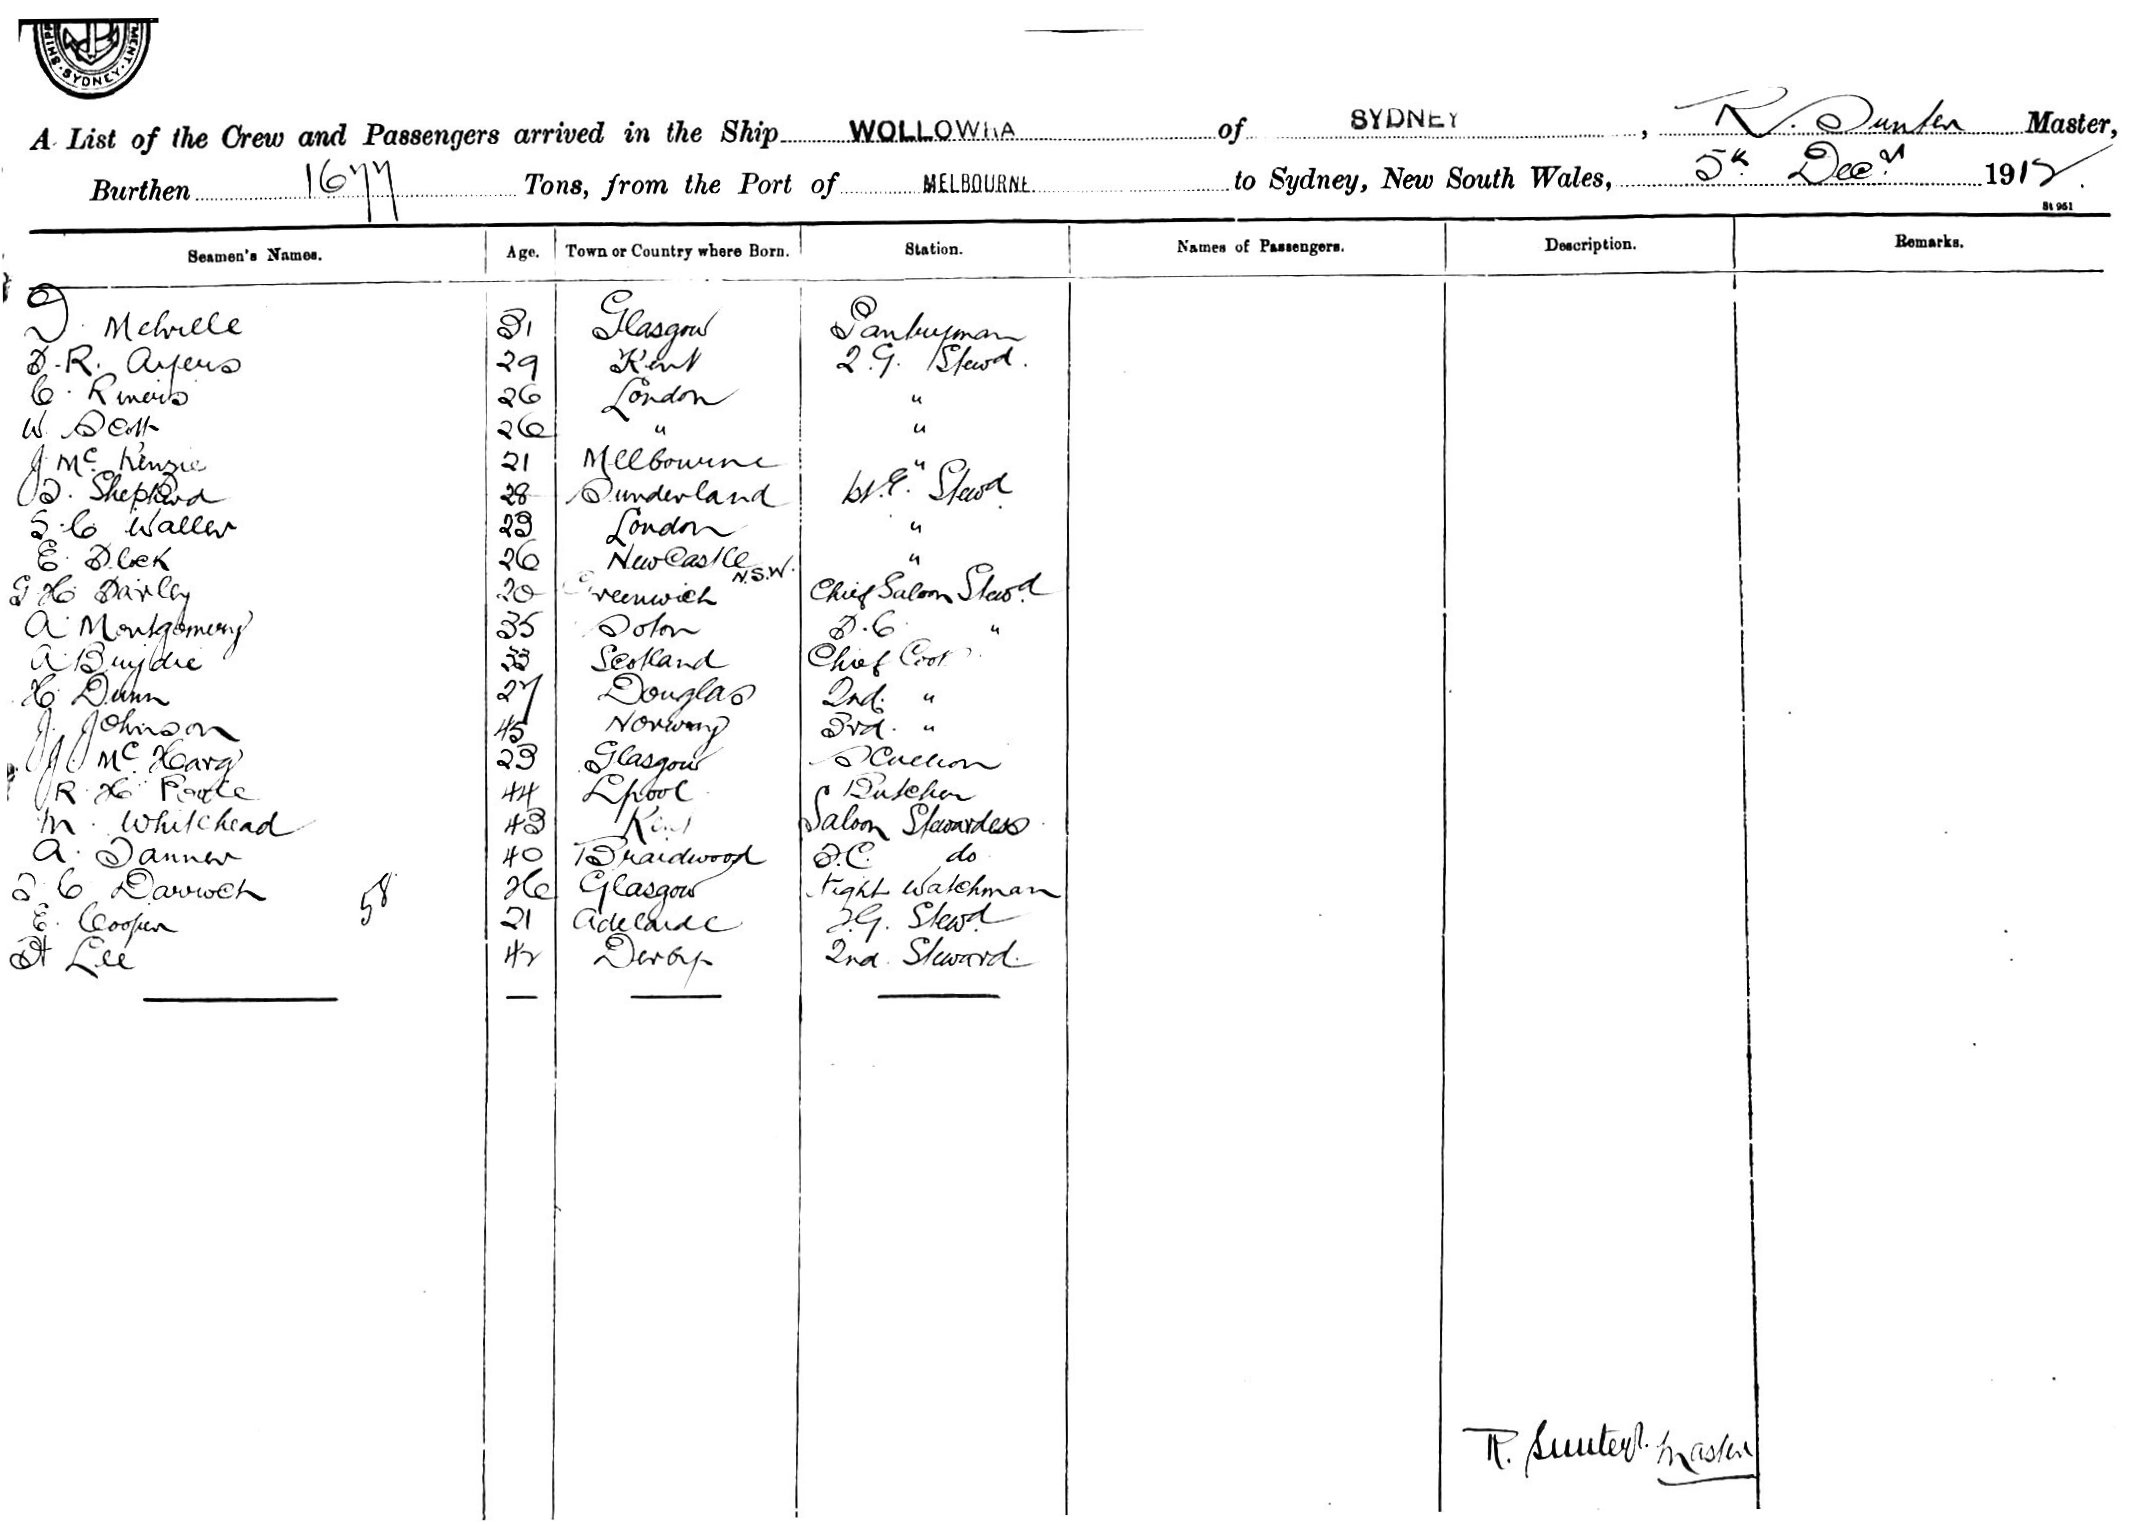 SYDNEY
A List of the Crew and Passengers arrived in the Ship WOLLOWRA of SYDNEY, R. Sunter Master,
Burthen 1677 Tons, from the Port of MELBOURNE to Sydney, New South Wales, 5th Decr 1912.
St 961
Seamen's Names. Age. Town or Country where Born. Station. Names of Passengers. Description. Remarks.
Melville 31 Glasgow Pantryman
R. Ayers 29 Kent 2.G. Stewd.
C. 26 London "
W. Scott 26 " "
J. McKenzie 21 Melbourne "
Shepherd 28 Sunderland Stewd
C Waller 23 London "
E. 26 NewCastle N.S.W. "
G H Darley 20 Greenwich Chief Saloon Stewd.
A Montgomery 35 Soton "
A 33 Scotland Chief Cook
H. Dunn 27 Douglas 2nd. "
J. Johnson 45 Norway 3rd. "
J Mc Harg 23 Glasgow Scullion
R. H. 44 Lpool Butcher
M. Whitehead 43 Kent Saloon Stewardess
A. Tanner 40 Braidwood do
C Darroch 58 26 Glasgow Night Watchman
E. Cooper 21 Adelaide Stewd.
Lee 42 Derby 2nd. Steward.
R. Sunter. Master